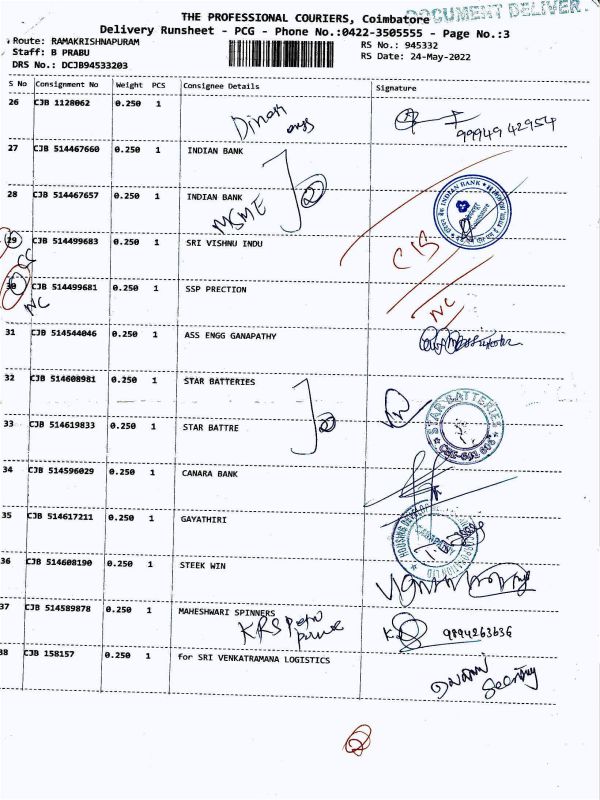 THE PROFESSIONAL COURIERS, Coimbatore
DOCUMENT DELIVER
Delivery Runsheet - PCG - Phone No.:0422-3505555 - Page No.:3
Route: RAMAKRISHNAPURAM
RS No.: 945332
Staff: B PRABU
RS Date: 24-May-2022
DRS No.: DCJB94533203
S No Consignment No Weight PCS Consignee Details Signature
26 CJB 1128062 0.250 1
99949 42954
27 CJB 514467660 0.250 1 INDIAN BANK
2
28 CJB 514467657 0.250 1 INDIAN BANK
MSME
INDIAN BANK
29 CJB 514499683 0.250 1 SRI VISHNU INDU
30 CJB 514499681 0.250 1 SSP PRECTION
NC
NC
31 CJB 514544046 0.250 1 ASS ENGG GANAPATHY
32 CJB 514608981 0.250 1 STAR BATTERIES
2
STAR BATTERIES
33 CJB 514619833 0.250 1 STAR BATTRE
34 CJB 514596029 0.250 1 CANARA BANK
35 CJB 514617211 0.250 1 GAYATHIRI
36 CJB 514608190 0.250 1 STEEK WIN
37 CJB 514589878 0.250 1 MAHESHWARI SPINNERS
KRS
9894263636
38 CJB 158157 0.250 1 for SRI VENKATRAMANA LOGISTICS
2